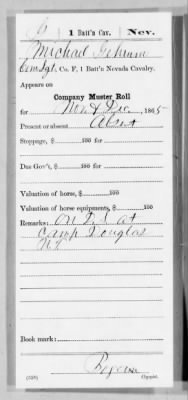 G | 1 Batt'n Cav. | Nev.
Michael
Com Sgt, Co. F, 1 Batt'n Nevada Cavalry.
Appears on
Company Muster Roll
for Nov & Dec, 1865
Present or absent Absent
Stoppage, $ 100 for
Due Gov't, $ 100 for
Valuation of horse, $ 100
Valuation of horse equipments, $ 100
Remarks: On D. S at
Camp Douglas
U T
Book mark:
(358)
Copyist.